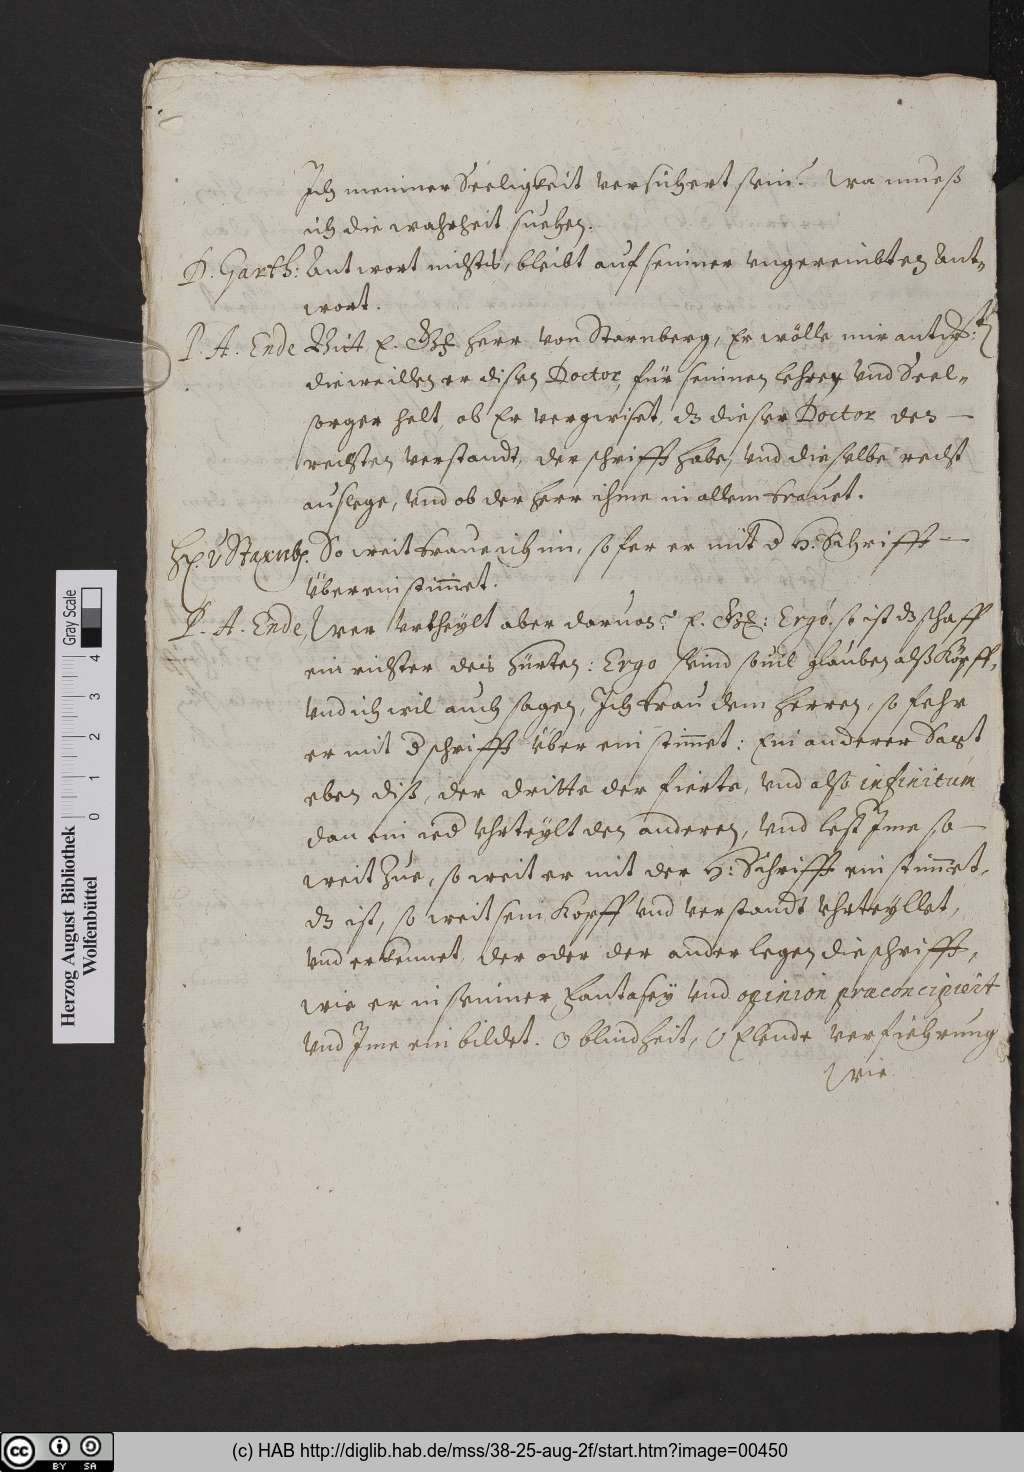 Ich meiner Seeligkeit versichert sein? Wa mueß
ich die wahrheit suechen.
D. Garth: Antwort nichts, bleibt auf seiner ungereimbten Ant-
wort.
P. A. Ende Bitt E. Gn. Herr von Starnberg, Er wölle mir antw:
dieweillen er disen Doctor, für seinen lehrer und Seel-
sorger helt, ob Er vergwiset, dz dieser Doctor den
rechten verstandt, der schrifft habe, und dieselbe recht
auslege, und ob der Herr ihme in allem trauet.
H. v Starnb. So weit traue ich im, so fer er mit d H: Schrifft
übereinstimmet.
P. A. Ende, Wer urtheylt aber daruon? E. Gn: Ergò. so ist dz schaff
ein richter deis hürten: Ergo seind sovil glauben alß Köpff,
und ich wil auch sagen, Ich trau dem Herren, so fehr
er mit d schrifft über ein stimmet: Ein anderer Sagt
eben diß, der dritte der fierte, und also infinitum
dan ein ied uhrteylt den anderen, und lest Ime so
weit zue, so weit er mit der H: Schrifft ein stimmet,
dz ist, so weit sein Kopff und verstandt uhrteyllet,
und erkennet, der oder der ander legen die schrifft,
wie er in seiner Fantasey und opinion præconcipiert
und Ime ein bildet. O blindheit, O Elende verfiehrung
wie
Herzog August Bibliothek
Wolfenbüttel
0 1 2 3 4
Gray Scale
cc BY SA
(c) HAB http://diglib.hab.de/mss/38-25-aug-2f/start.htm?image=00450